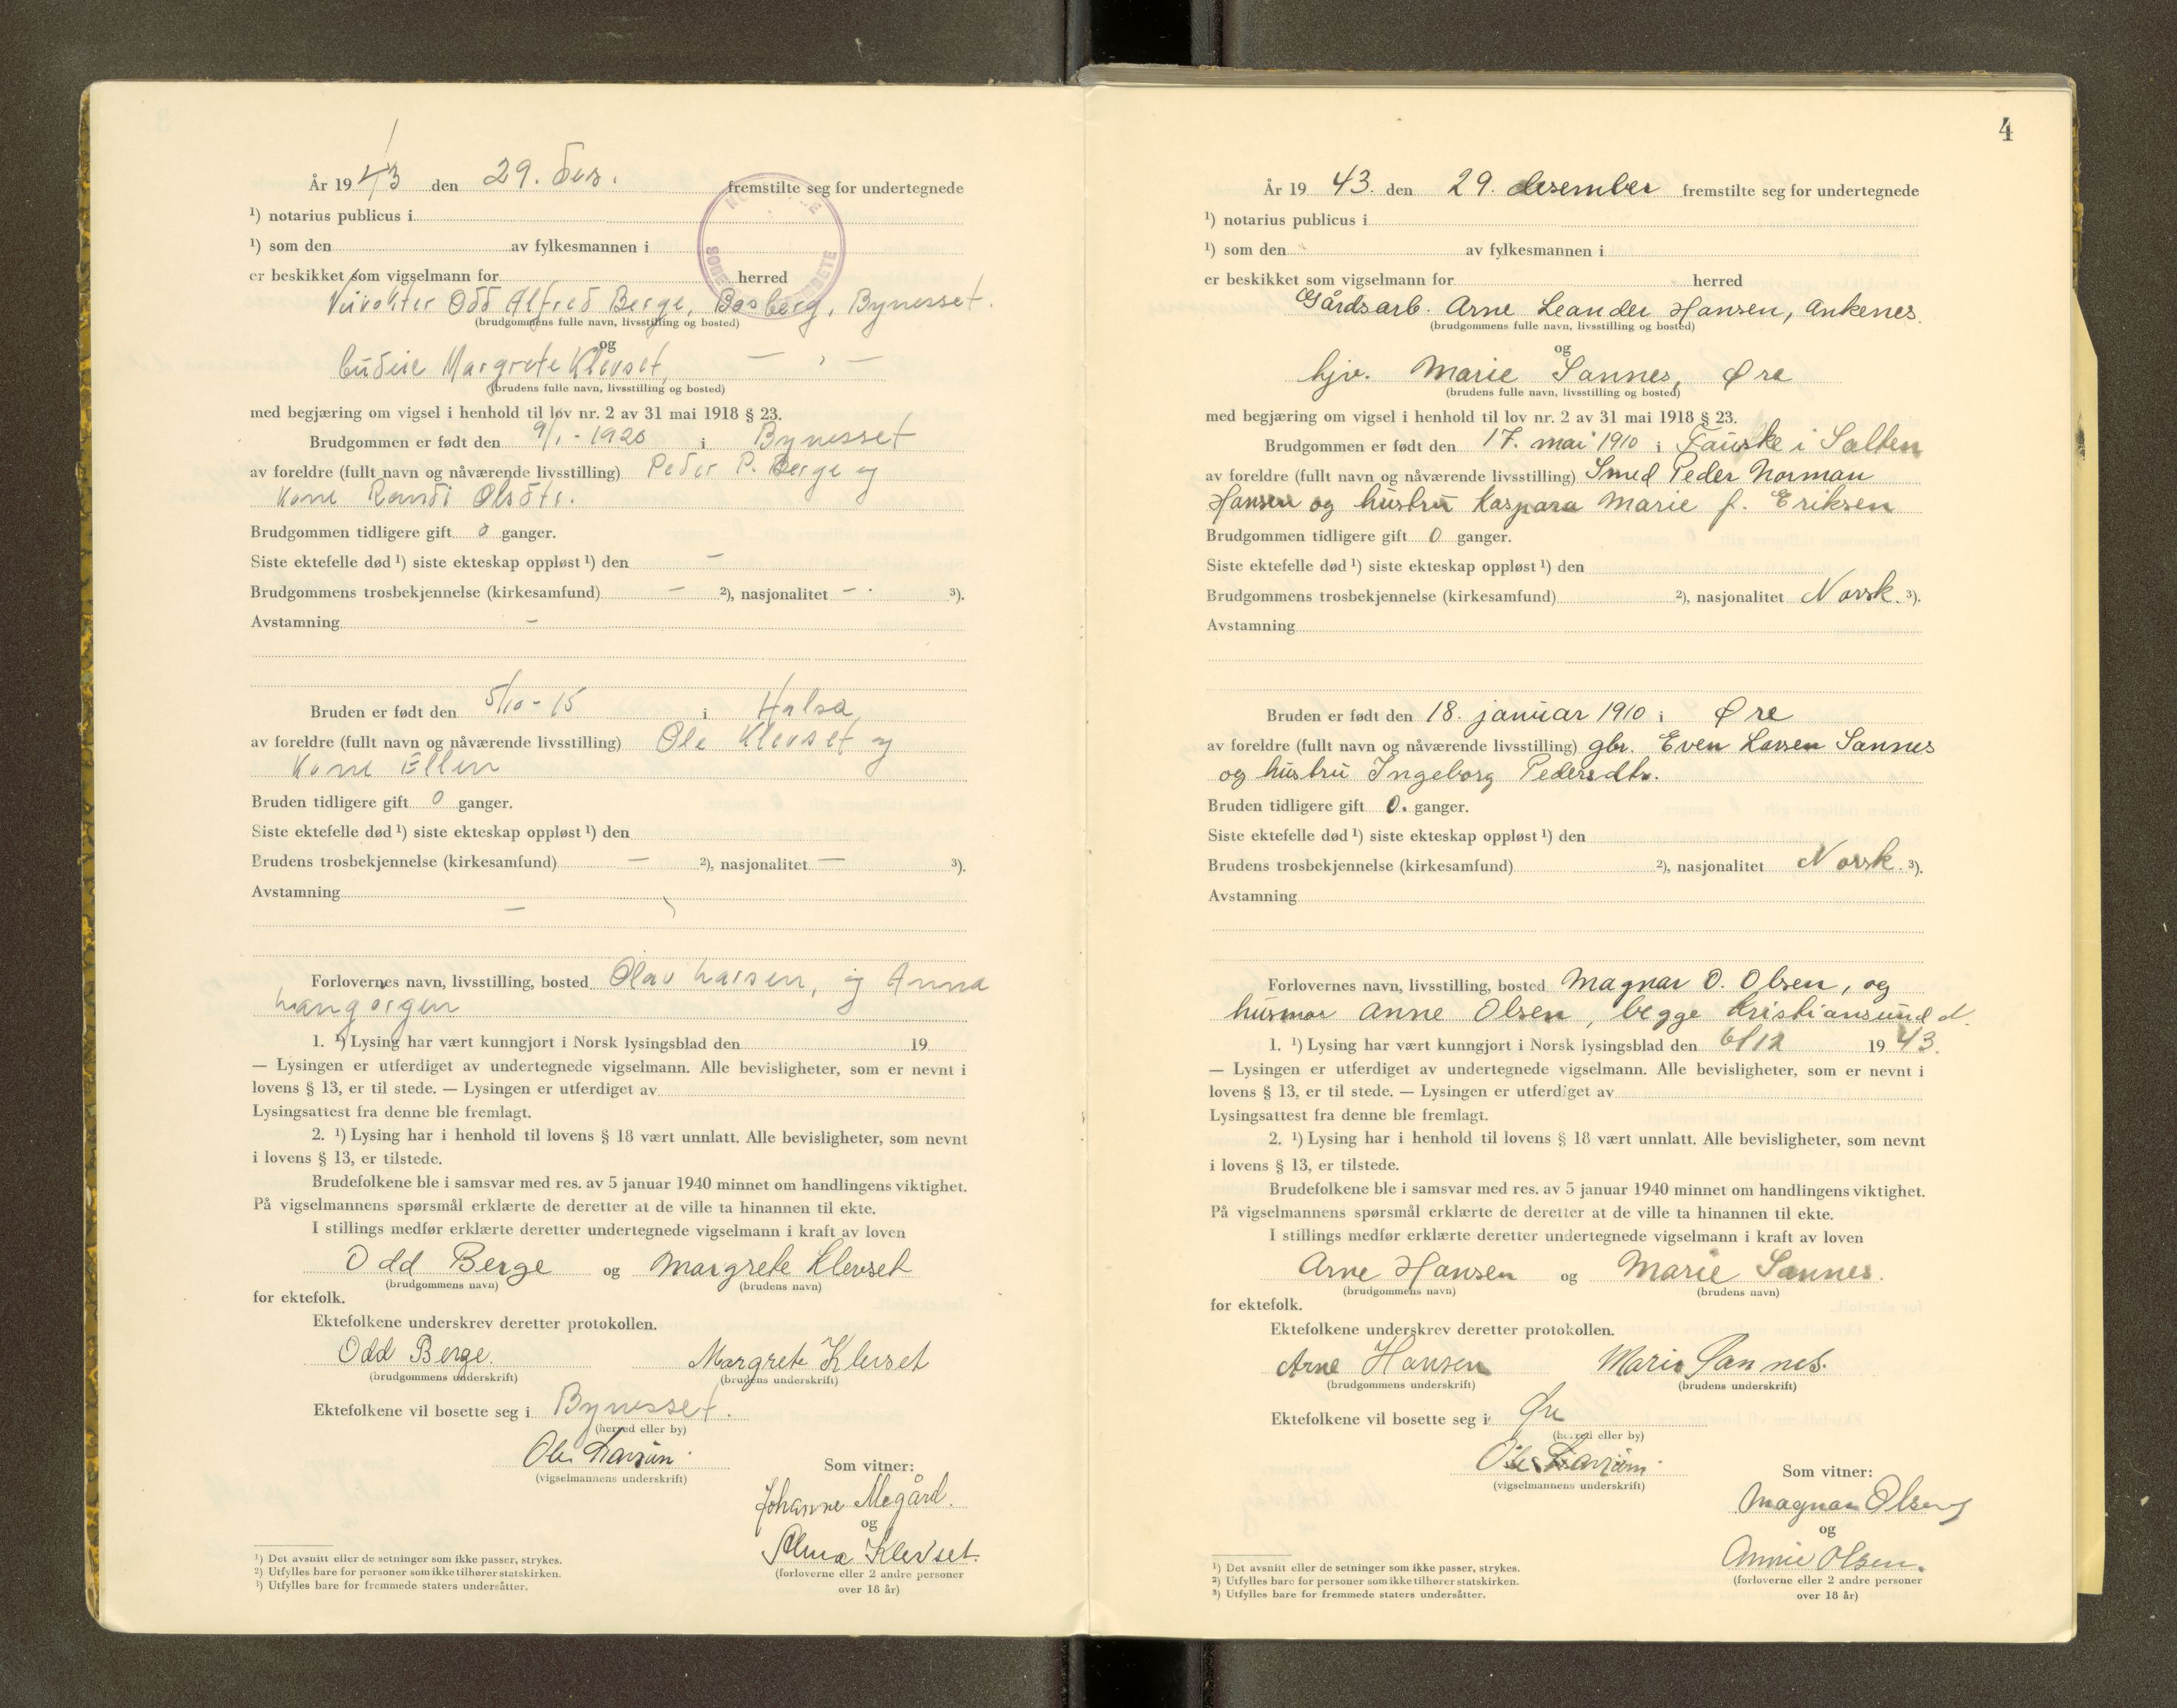 År 19 43 den 29. Des. fremstilte seg for undertegnede
¹) notarius publicus i
¹) som den av fylkesmannen i
er beskikket som vigselmann for herred
Odd Alfred Berge, Bosberg, Bynesset.
(brudgommens fulle navn, livsstilling og bosted)
og
Margrete Klevset, — " —
(brudens fulle navn, livsstilling og bosted)
med begjæring om vigsel i henhold til lov nr. 2 av 31 mai 1918 § 23.
Brudgommen er født den 9/1 - 1920 i Bynesset
av foreldre (fullt navn og nåværende livsstilling) Peder P. Berge og
kone Randi Olsdtr.
Brudgommen tidligere gift 0 ganger.
Siste ektefelle død ¹) siste ekteskap oppløst ¹) den —
Brudgommens trosbekjennelse (kirkesamfund) — ²), nasjonalitet — . ³).
Avstamning —
Bruden er født den 5/10 - 15 i Halsa
av foreldre (fullt navn og nåværende livsstilling) Ole Klevset og
kone Ellen
Bruden tidligere gift 0 ganger.
Siste ektefelle død ¹) siste ekteskap oppløst ¹) den
Brudens trosbekjennelse (kirkesamfund) — ²), nasjonalitet — ³).
Avstamning
—
Forlovernes navn, livsstilling, bosted Olav Larsen, og Anna
Langørgen
1. ¹) Lysing har vært kunngjort i Norsk lysingsblad den 19
— Lysingen er utferdiget av undertegnede vigselmann. Alle bevisligheter, som er nevnt i
lovens § 13, er til stede. — Lysingen er utferdiget av
Lysingsattest fra denne ble fremlagt.
2. ¹) Lysing har i henhold til lovens § 18 vært unnlatt. Alle bevisligheter, som nevnt
i lovens § 13, er tilstede.
Brudefolkene ble i samsvar med res. av 5 januar 1940 minnet om handlingens viktighet.
På vigselmannens spørsmål erklærte de deretter at de ville ta hinannen til ekte.
I stillings medfør erklærte deretter undertegnede vigselmann i kraft av loven
Odd Berge og Margrete Klevset
(brudgommens navn) (brudens navn)
for ektefolk.
Ektefolkene underskrev deretter protokollen.
Odd Berge. Margrete Klevset
(brudgommens underskrift) (brudens underskrift)
Ektefolkene vil bosette seg i Bynesset.
(herred eller by)
(vigselmannens underskrift)
Som vitner:
Johanne Megård.
og
Alma Klevset.
(forloverne eller 2 andre personer
over 18 år)
¹) Det avsnitt eller de setninger som ikke passer, strykes.
²) Utfylles bare for personer som ikke tilhører statskirken.
³) Utfylles bare for fremmede staters undersåtter.
4
År 19 43. den 29. desember fremstilte seg for undertegnede
¹) notarius publicus i
¹) som den av fylkesmannen i
er beskikket som vigselmann for herred
Gårdsarb. Arne Leander Hansen, Ankenes.
(brudgommens fulle navn, livsstilling og bosted)
og
hjv. Marie Sannes, Øre
(brudens fulle navn, livsstilling og bosted)
med begjæring om vigsel i henhold til lov nr. 2 av 31 mai 1918 § 23.
Brudgommen er født den 17. mai 1910 i Fauske i Salten
av foreldre (fullt navn og nåværende livsstilling) Smed Peder Norman
Hansen og hustru Kaspara Marie f. Eriksen
Brudgommen tidligere gift 0 ganger.
Siste ektefelle død ¹) siste ekteskap oppløst ¹) den
Brudgommens trosbekjennelse (kirkesamfund) ²), nasjonalitet Norsk. ³).
Avstamning
Bruden er født den 18. januar 1910 i Øre
av foreldre (fullt navn og nåværende livsstilling) gbr. Even Larsen Sannes
og hustru Ingeborg Pedersdtr.
Bruden tidligere gift 0. ganger.
Siste ektefelle død ¹) siste ekteskap oppløst ¹) den
Brudens trosbekjennelse (kirkesamfund) ²), nasjonalitet Norsk. ³).
Avstamning
Forlovernes navn, livsstilling, bosted Magnar O. Olsen, og
husmor Anne Olsen, begge Kristiansund N.
1. ¹) Lysing har vært kunngjort i Norsk lysingsblad den 6/12 19 43.
— Lysingen er utferdiget av undertegnede vigselmann. Alle bevisligheter, som er nevnt i
lovens § 13, er til stede. — Lysingen er utferdiget av
Lysingsattest fra denne ble fremlagt.
2. ¹) Lysing har i henhold til lovens § 18 vært unnlatt. Alle bevisligheter, som nevnt
i lovens § 13, er tilstede.
Brudefolkene ble i samsvar med res. av 5 januar 1940 minnet om handlingens viktighet.
På vigselmannens spørsmål erklærte de deretter at de ville ta hinannen til ekte.
I stillings medfør erklærte deretter undertegnede vigselmann i kraft av loven
Arne Hansen og Marie Sannes.
(brudgommens navn) (brudens navn)
for ektefolk.
Ektefolkene underskrev deretter protokollen.
Arne Hansen Marie Sannes.
(brudgommens underskrift) (brudens underskrift)
Ektefolkene vil bosette seg i Øre
(herred eller by)
(vigselmannens underskrift)
Som vitner:
Magnar Olsen
og
Annie Olsen.
(forloverne eller 2 andre personer
over 18 år)
¹) Det avsnitt eller de setninger som ikke passer, strykes.
²) Utfylles bare for personer som ikke tilhører statskirken.
³) Utfylles bare for fremmede staters undersåtter.